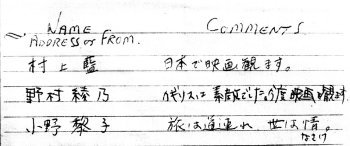 NAME
ADDRESS or FROM.
COMMENTS
村上藍 日本で映画観ます。
野村綾乃 イギリスは素敵でした。今度映画観ます
小野梨子 旅は道連れ 世は情。
なさけ